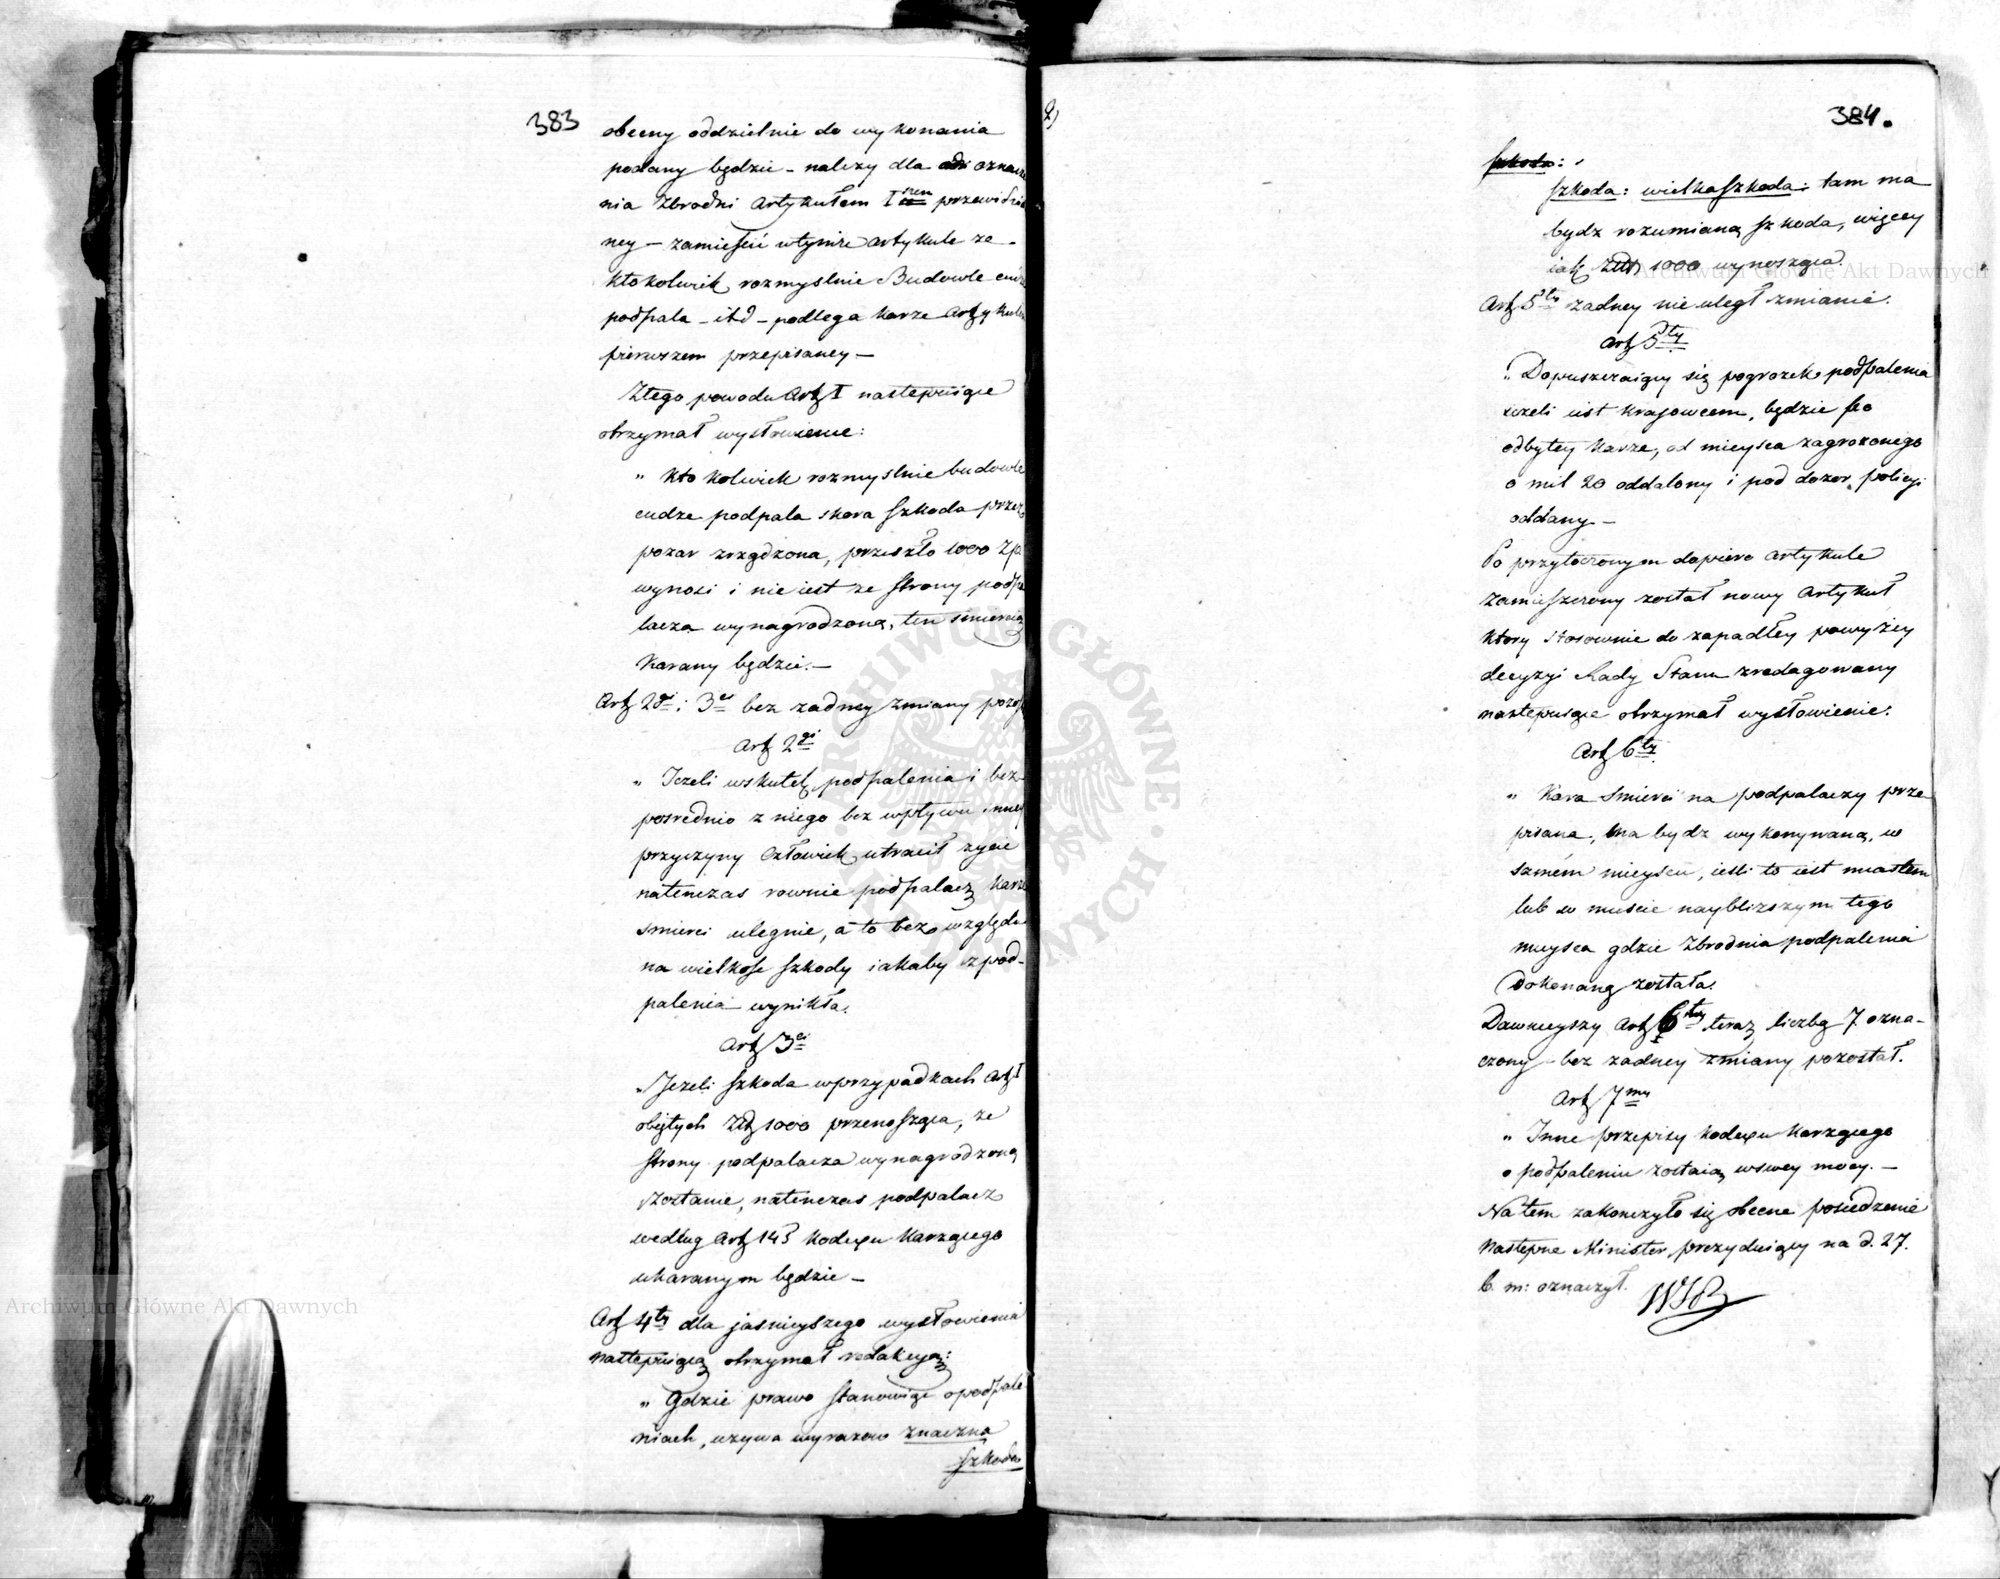 383
obecny oddzielnie do wykonania
podany będzie – należy dla oznacze
nia Zbrodni Artykułem I przewidzia
ney – zamieścić w tymże artykule że –
ktokolwiek rozmyslnie Budowle cudze
podpala – itd – podlega karze Artykułem
pierwszem przepisaney –
Z tego powodu Art I następuiące
otrzymał wysłowienie:
„ Kto kolwiek rozmyslnie budowle
cudze podpala skoro szkoda przez
pożar zrządzona, przeszło 1000 Zp
wynosi i nie iest ze strony podpa
lacza wynagrodzoną, ten śmiercią
karany będzie. –
Art 2gi i 3ci bez zadney zmiany pozost
Art 2gi
„ Jeżeli wskutek podpalenia i bez
posrednio z niego bez wpływu inney
przyczyny Człowiek utracił zycie
natenczas rownie podpalacz karze
smierci ulegnie, a to bez względu
na wielkość szkody iakaby z pod-
palenia wynikła.
Art 3ci
„ Jeżeli szkoda w przypadkach Art I
obiętych Złt 1000 przenosząca, ze
strony podpalacza wynagrodzoną
zostanie, natenczas podpalacz
według Art 143 Kodexu Karzącego
ukaranym będzie –
Art 4ty dla jasnieyszego wysłowienia
następuiącą otrzymał redakcyą:
„ Gdzie prawo stanowiąc o podpale
niach, uzywa wyrazow znaczna
szkoda
384.
szkoda:
szkoda: wielka szkoda: tam ma
bydz rozumianą szkoda, więcey
iak Złt 1000 wynosząca.
Art 5ty zadney nie uległ zmianie.
Art 5ty
„ Dopuszczaiący się pogrozek podpalenia
iezeli iest krajowcem, będzie po
odbytey karze, od mieysca zagrozonego
o mil 20 oddalony i pod dozor policyi
oddany –
Po przytoczonym dopiero Artykule
zamieszczony został nowy Artykuł
ktory stosownie do zapadłey powyżey
decyzyi Rady Stanu zredagowany
następuiące otrzymał wysłowienie:
Art 6ty
„ Kara śmierci na podpalaczy prze-
pisana, ma bydz wykonywaną, w
samém mieyscu, iesli to iest miastem
lub w miescie naybliższym tego
mieysca gdzie Zbrodnia podpalenia
dokonaną została.
Dawnieyszy Art 6ty teraz liczbą 7 ozna-
czony – bez zadney zmiany pozostał.
Art 7my
„ Inne przepisy Kodexu Karzącego
o podpaleniu zostaią w swey mocy. –
Na tem zakończyło się obecne posiedzenie
następne Minister prezyduiący na d. 27.
b. m: oznaczył.
Archiwum Główne Akt Dawnych
Archiwum Główne Akt Dawnych
ARCHIWUM GŁÓWNE AKT DAWNYCH